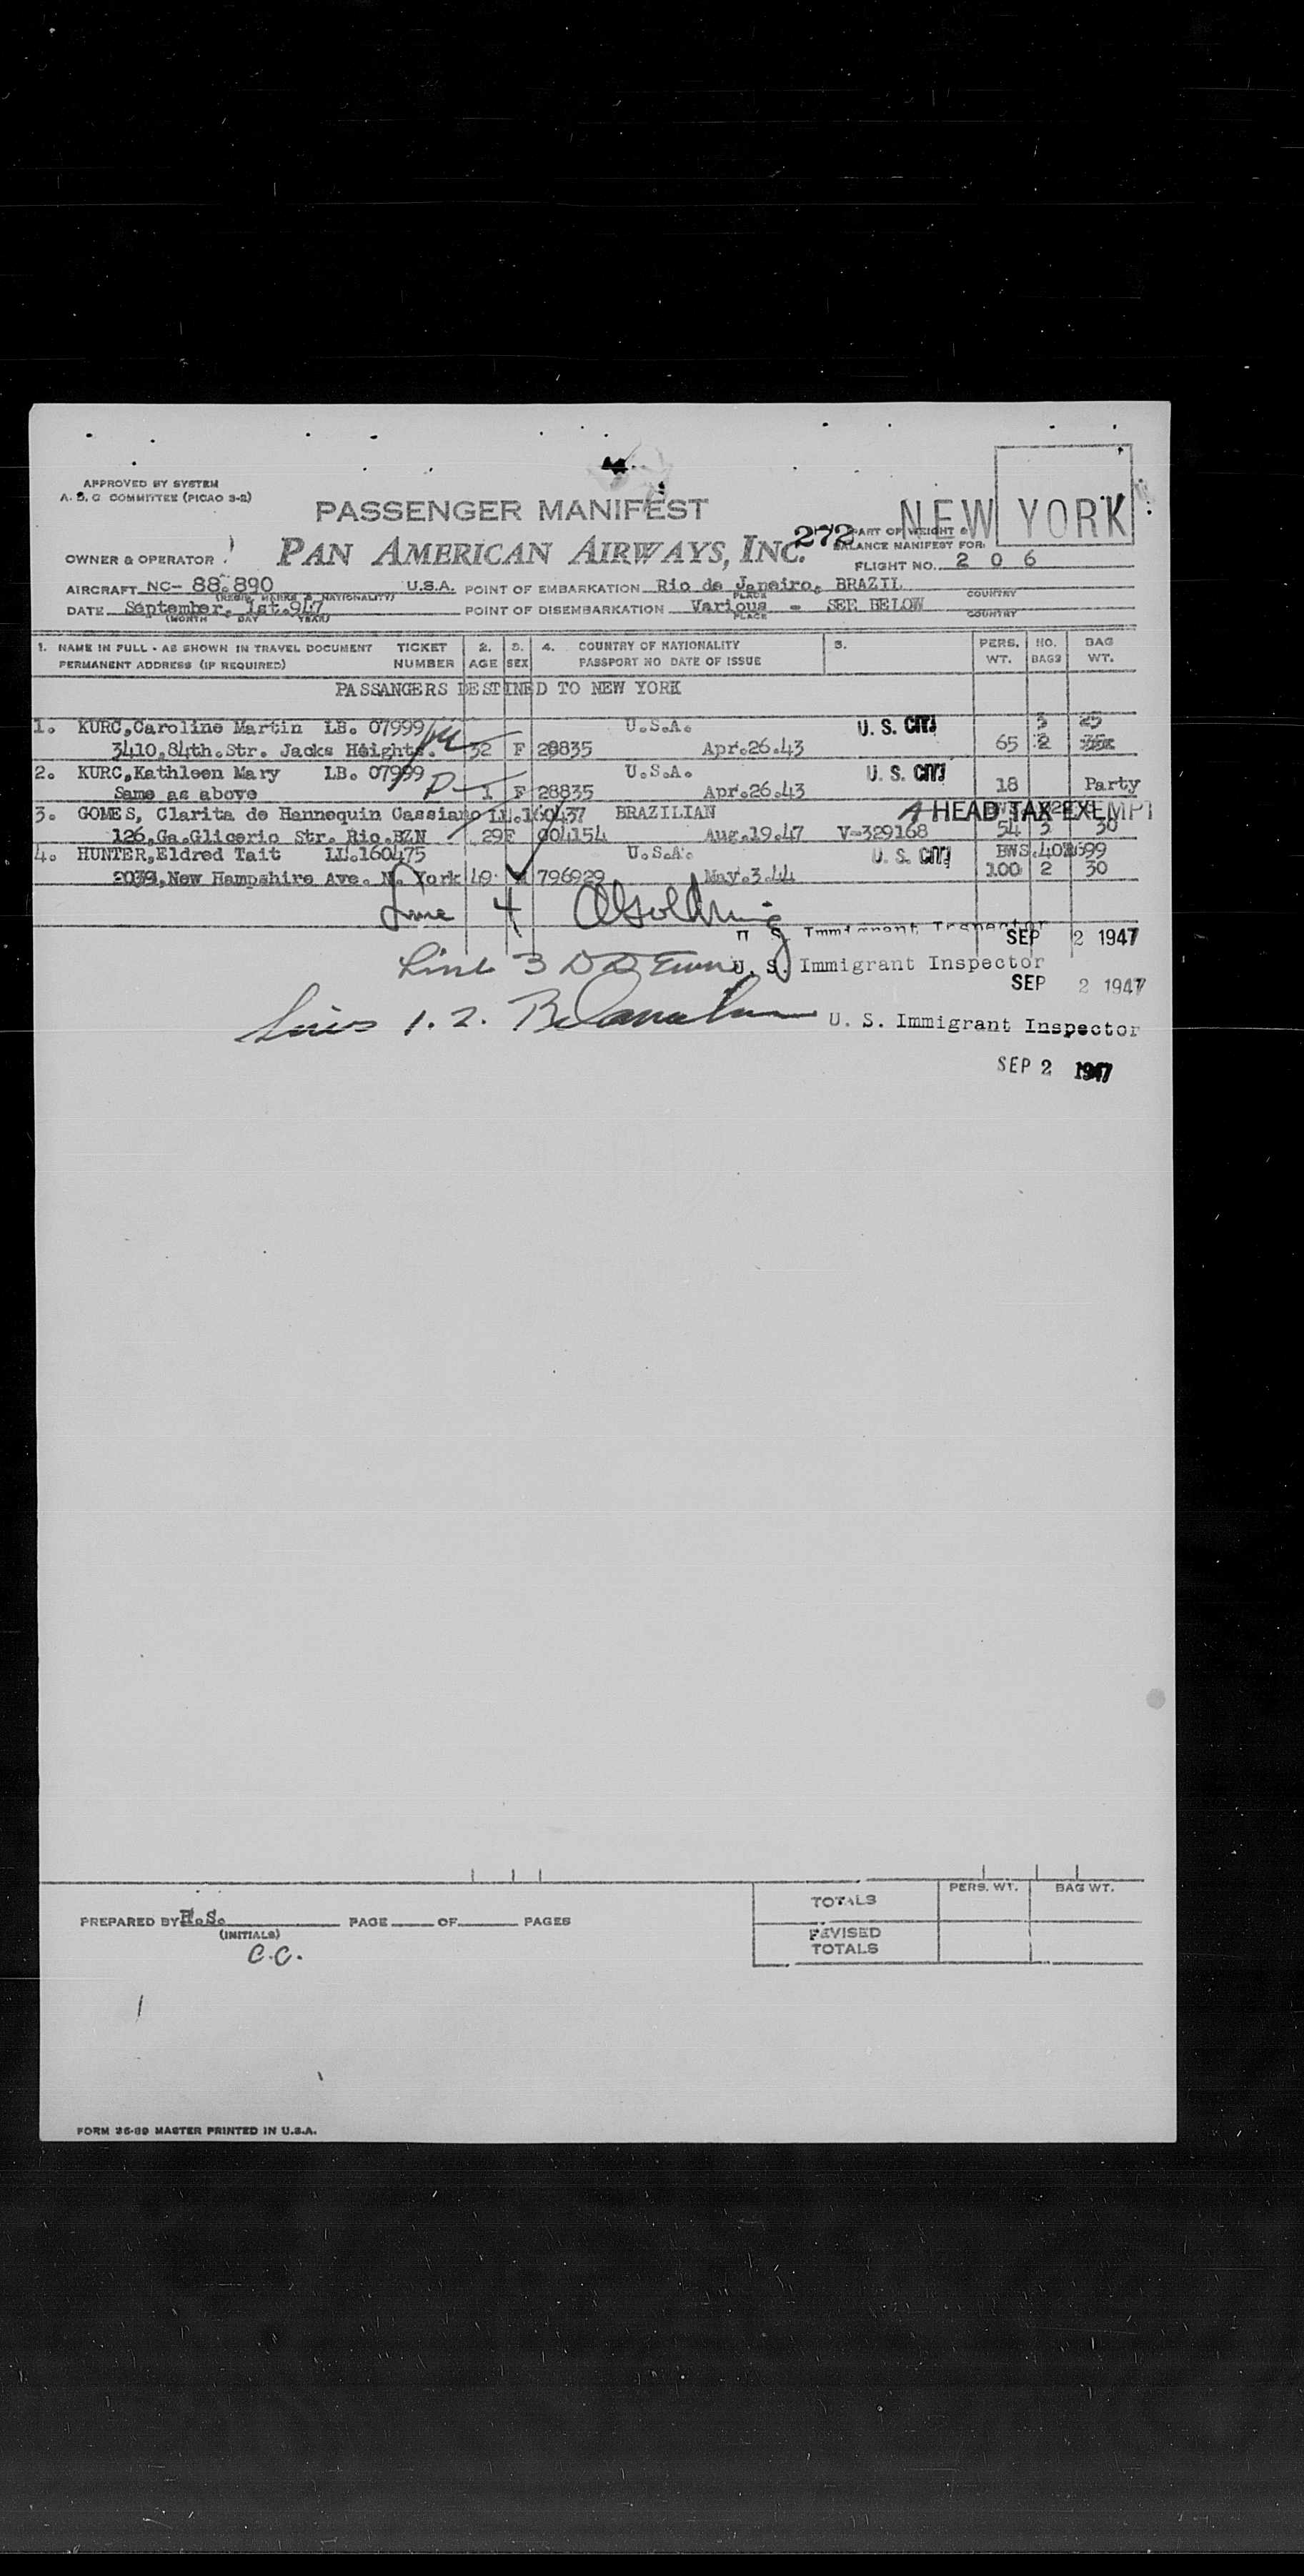 APPROVED BY SYSTEM
A. D. C COMMITTEE (PICAO 3-2)
NEW YORK
PASSENGER MANIFEST
272
PART OF WEIGHT &
BALANCE MANIFEST FOR:
OWNER & OPERATOR
PAN AMERICAN AIRWAYS, INC.
FLIGHT NO. 2 0 6
AIRCRAFT NC- 88.890 U.S.A. POINT OF EMBARKATION Rio de Janeiro, BRAZIL
(REGIS. MARKS & NATIONALITY) PLACE COUNTRY
DATE September, 1st.947 POINT OF DISEMBARKATION Various - SEE BELOW
(MONTH DAY YEAR) PLACE COUNTRY
1. NAME IN FULL - AS SHOWN IN TRAVEL DOCUMENT TICKET 2. 3. 4. COUNTRY OF NATIONALITY 5. PERS. NO. BAG
PERMANENT ADDRESS (IF REQUIRED) NUMBER AGE SEX PASSPORT NO DATE OF ISSUE WT. BAGS WT.
PASSANGERS DESTINED TO NEW YORK
1. KURC,Caroline Martin LB. 07999 U.S.A. U. S. CITI 3 25
3410,84th.Str. Jacks Heights. 32 F 28835 Apr.26.43 65 2
2. KURC,Kathleen Mary LB. 07999 U.S.A. U. S. CITI
Same as above 1 F 28835 Apr.26.43 18 Party
3. GOMES, Clarita de Hannequin Cassiano LL.160437 BRAZILIAN HEAD TAX EXEMPT
126,Ga.Glicerio Str. Rio.BZN 29F 004154 Aug.19.47 V-329168 54 3 30
4. HUNTER,Eldred Tait LL.160475 U.S.A. U. S. CITI BWS.
2039,New Hampshire Ave. N. York 49 796929 May.3.44 100 2 30
Line 4 Goldring
U. S. Immigrant Inspector
SEP 2 1947
Line 3 U. S. Immigrant Inspector
SEP 2 1947
Lines 1. 2. U. S. Immigrant Inspector
SEP 2 1947
TOTALS PERS. WT. BAG WT.
PREPARED BY H.S. PAGE OF PAGES
(INITIALS)
REVISED
TOTALS
C.C.
FORM 36-89 MASTER PRINTED IN U.S.A.